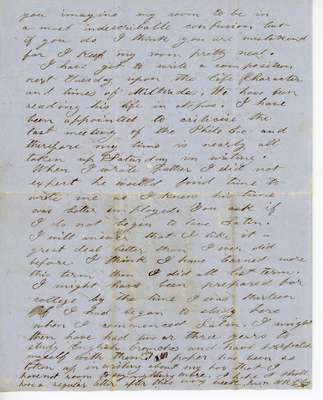 you imagine my room to be in
a most indescribable confusion but
if you do I think you are mistaken
for I keep my room pretty neat.
I have got to write a composition
next Tuesday upon the life Character
and times of Miltiades. We have been
reading his life in Nepos. I have
been appointed to criticise the
last meeting of the Philo So. and
therefore my time is nearly all
taken up Saturday in writing.
When I wrote Father I did not
expect he would find time to
write me as I know his time
was better employed. You ask if
I do not began to love Latin.
I will answer that I like it a
great deal better than I ever did
before. I think I have learned more
this term than I did all last term.
I might have been prepared for
college by the time I was thirteen
if I had began to study here
when I commenced Latin. I might
then have had two or three years to
study English branches and have perfected
myself in them. My paper has been so
taken up in writing about my that I
have not room to say any thing more. I hope I shall
have a regular letter after this every week from